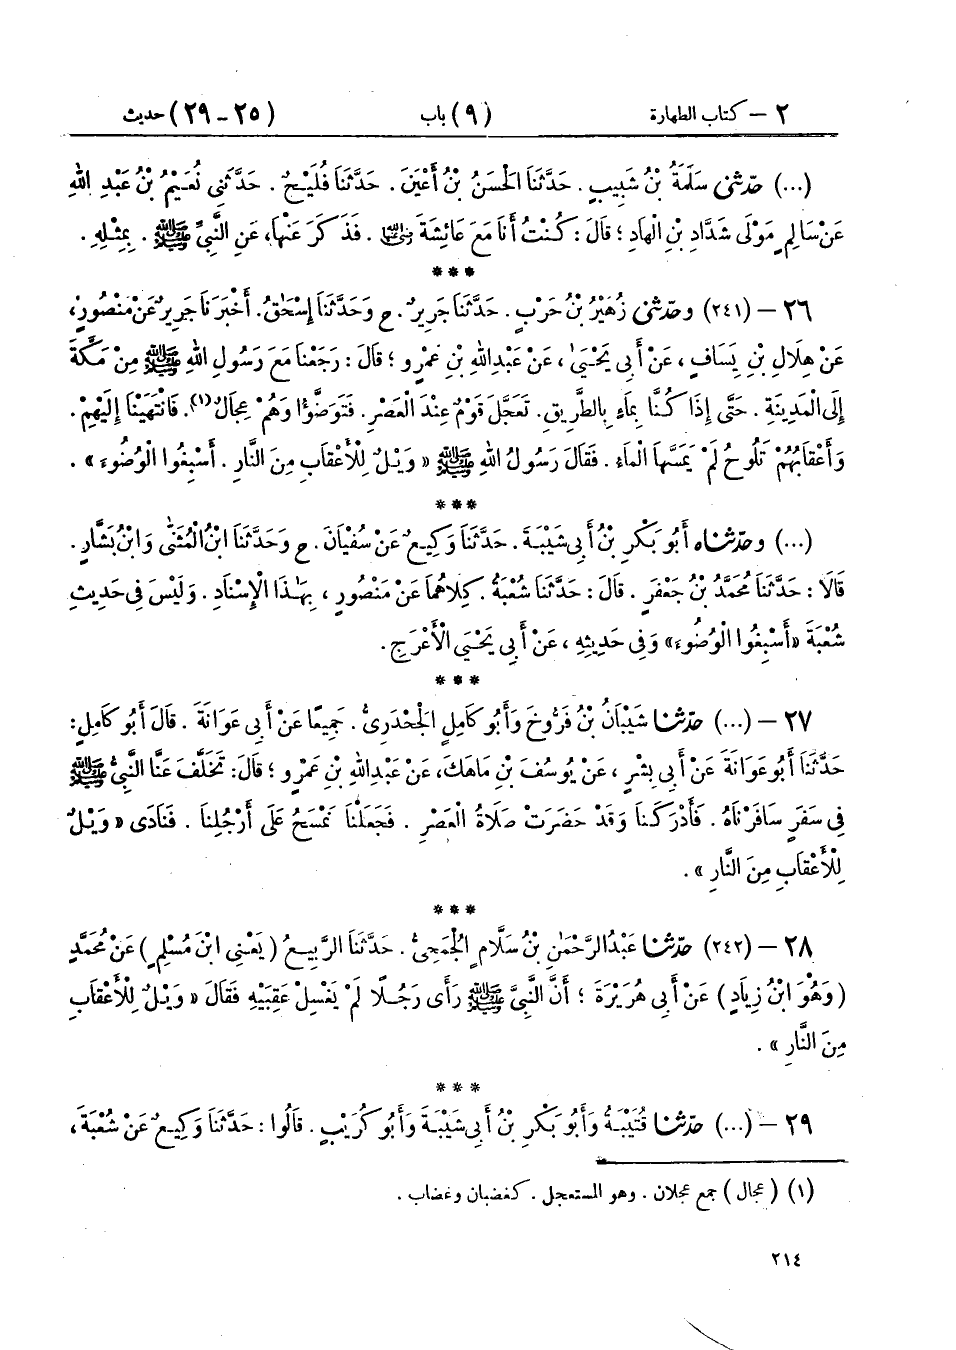 ٢ – كتاب الطهارة (٩) باب (٢٥ – ٢٩) حديث
(...) حدّثني سَلَمَةُ بْنُ شَبِيبٍ . حَدَّثَنَا الْحَسَنُ بْنُ أَعْيَنَ . حَدَّثَنَا فُلَيْحٌ . حَدَّثَنِي نُعَيْمُ بْنُ عَبْدِ اللهِ
عَنْ سَالِمٍ مَوْلَى شَدَّادِ بْنِ الْهَادِ ؛ قَالَ : كُنْتُ أَنَا مَعَ عَائِشَةَ رضي الله عنها . فَذَكَرَ عَنْهَا، عَنِ النَّبِيِّ ﷺ . بِمِثْلِهِ .
***
٢٦ – (٢٤١) وحدّثني زُهَيْرُ بْنُ حَرْبٍ . حَدَّثَنَا جَرِيرٌ . ح وَحَدَّثَنَا إِسْحَاقُ. أَخْبَرَنَا جَرِيرٌ عَنْ مَنْصُورٍ،
عَنْ هِلَالِ بْنِ يَسَافٍ ، عَنْ أَبِي يَحْيَىٰ ، عَنْ عَبْدِ اللهِ بْنِ عَمْرٍو ؛ قَالَ : رَجَعْنَا مَعَ رَسُولِ اللهِ ﷺ مِنْ مَكَّةَ
إِلَى الْمَدِينَةِ . حَتَّى إِذَا كُنَّا بِمَاءٍ بِالطَّرِيقِ. تَعَجَّلَ قَوْمٌ عِنْدَ الْعَصْرِ . فَتَوَضَّؤُا وَهُمْ عِجَالٌ(١). فَانْتَهَيْنَا إِلَيْهِمْ .
وَأَعْقَابُهُمْ تَلُوحُ لَمْ يَمَسَّهَا الْمَاءُ . فَقَالَ رَسُولُ اللهِ ﷺ « وَيْلٌ لِلْأَعْقَابِ مِنَ النَّارِ . أَسْبِغُوا الْوُضُوءَ » .
***
(...) وحدّثناه أَبُو بَكْرِ بْنُ أَبِي شَيْبَةَ . حَدَّثَنَا وَكِيعٌ عَنْ سُفْيَانَ . ح وَحَدَّثَنَا ابْنُ الْمُثَنَّى وَابْنُ بَشَّارٍ .
قَالَا : حَدَّثَنَا مُحَمَّدُ بْنُ جَعْفَرٍ . قَالَ : حَدَّثَنَا شُعْبَةُ . كِلَاهُمَا عَنْ مَنْصُورٍ ، بِهَٰذَا الْإِسْنَادِ . وَلَيْسَ فِي حَدِيثِ
شُعْبَةَ «أَسْبِغُوا الْوُضُوءَ» وَفِي حَدِيثِهِ ، عَنْ أَبِي يَحْيَى الْأَعْرَجِ .
***
٢٧ – (...) حدّثنا شَيْبَانُ بْنُ فَرُّوخَ وَأَبُو كَامِلٍ الْجَحْدَرِيُّ . جَمِيعًا عَنْ أَبِي عَوَانَةَ . قَالَ أَبُو كَامِلٍ:
حَدَّثَنَا أَبُو عَوَانَةَ عَنْ أَبِي بِشْرٍ ، عَنْ يُوسُفَ بْنِ مَاهَكَ، عَنْ عَبْدِ اللهِ بْنِ عَمْرٍو ؛ قَالَ: تَخَلَّفَ عَنَّا النَّبِيُّ ﷺ
فِي سَفَرٍ سَافَرْنَاهُ . فَأَدْرَكَنَا وَقَدْ حَضَرَتْ صَلَاةُ الْعَصْرِ . فَجَعَلْنَا نَمْسَحُ عَلَى أَرْجُلِنَا . فَنَادَى « وَيْلٌ
لِلْأَعْقَابِ مِنَ النَّارِ » .
***
٢٨ – (٢٤٢) حدّثنا عَبْدُ الرَّحْمَٰنِ بْنُ سَلَّامٍ الْجُمَحِيُّ . حَدَّثَنَا الرَّبِيعُ (يَعْنِي ابْنَ مُسْلِمٍ) عَنْ مُحَمَّدٍ
(وَهُوَ ابْنُ زِيَادٍ) عَنْ أَبِي هُرَيْرَةَ ؛ أَنَّ النَّبِيَّ ﷺ رَأَى رَجُلًا لَمْ يَغْسِلْ عَقِبَيْهِ فَقَالَ « وَيْلٌ لِلْأَعْقَابِ
مِنَ النَّارِ » .
***
٢٩ – (...) حدّثنا قُتَيْبَةُ وَأَبُو بَكْرِ بْنُ أَبِي شَيْبَةَ وَأَبُو كُرَيْبٍ . قَالُوا : حَدَّثَنَا وَكِيعٌ عَنْ شُعْبَةَ ،
(١) (عجال) جمع عجلان . وهو المستعجل . كغضبان وغضاب .
٢١٤